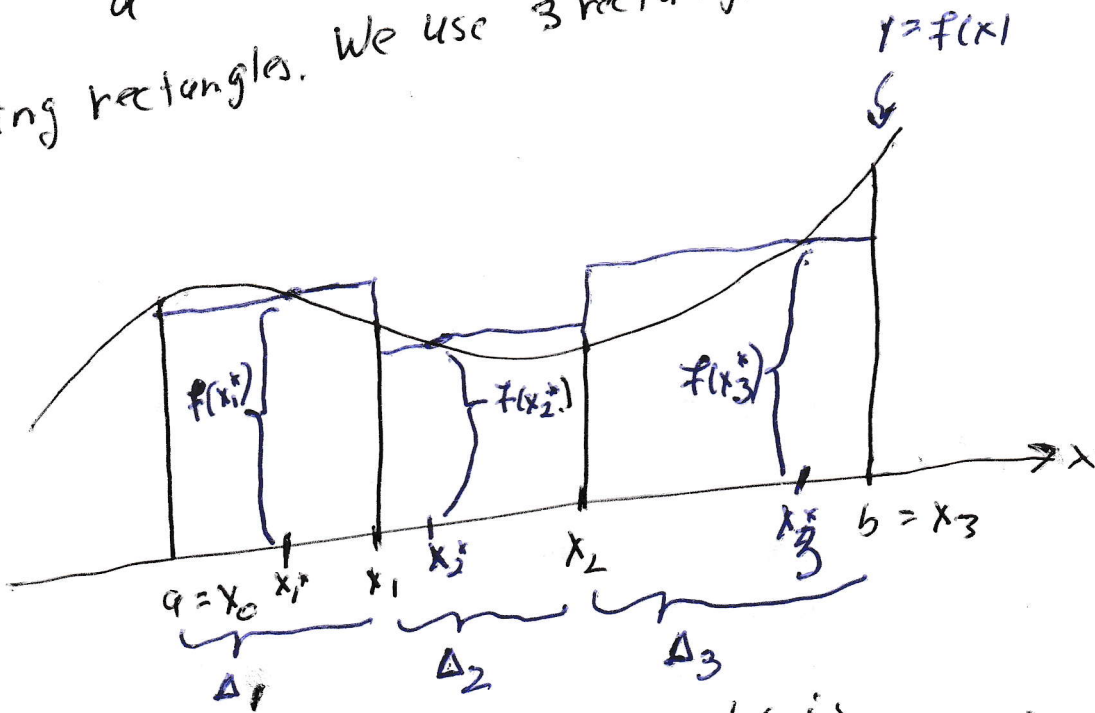 ing rectangles. We use 3 rectang
y = f(x)
f(x₁*)
f(x₂*)
f(x₃*)
x
a = x₀ x₁* x₁ x₂* x₂ x₃* b = x₃
Δ₁ Δ₂ Δ₃